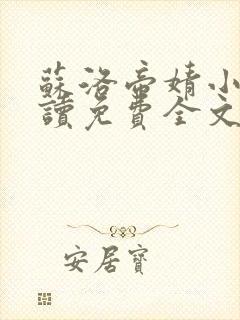 蘇洛帝婧小
讀免費全文
安居寶